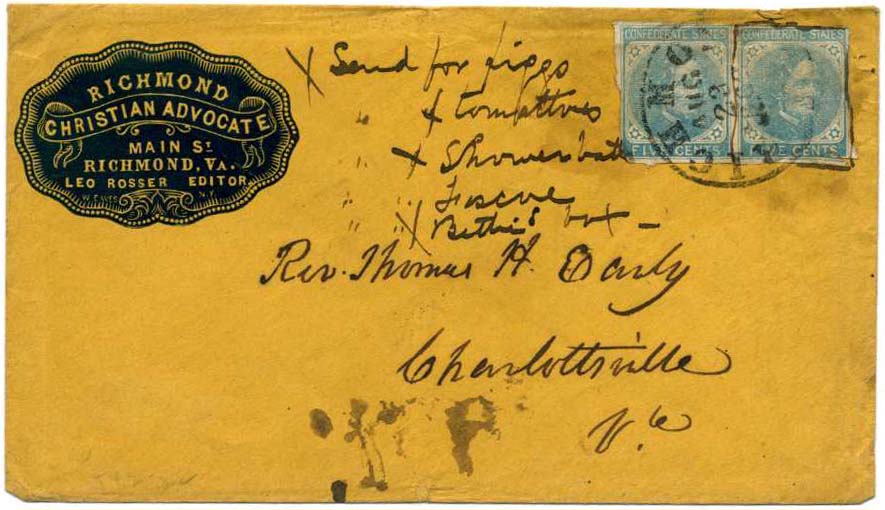 RICHMOND
CHRISTIAN ADVOCATE
MAIN ST
RICHMOND, VA.
LEO ROSSER EDITOR
N.Y.
X Send for figgs
" X tomattoes
" X Showerbath
" "
" " X Bettie's box –
CONFEDERATE STATES
FIVE CENTS
CONFEDERATE STATES
FIVE CENTS
AUG
23
Rev. Thomas H. Early
Charlottsville
Va